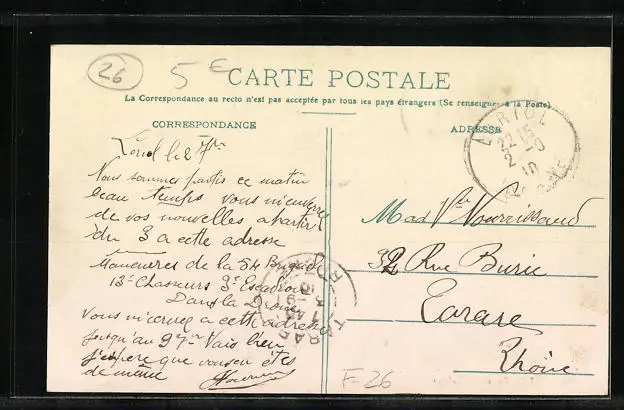 26
5 €
CARTE POSTALE
La Correspondance au recto n'est pas acceptée par tous les pays étrangers (Se renseigner à la Poste)
CORRESPONDANCE
ADRESSE
LORIOL
22 15
2 -9
10
DROME
Loriol le 2 7bre
Nous sommes partis ce matin
beau temps vous m'enverrez
de vos nouvelles a partir
du 3 a cette adresse
Manœuvres de la 54 Brigade
13e Chasseurs 3e Escadron
Dans la Drome
Vous m'ecrirez a cette adresse
jusqu'au 9 7bre Vais bien
j'espere que vous en êtes
de même
TARARE
3 -9
10
Mad Vve Nourrissaud
32 Rue Burie
Tarare
Rhône
F-26